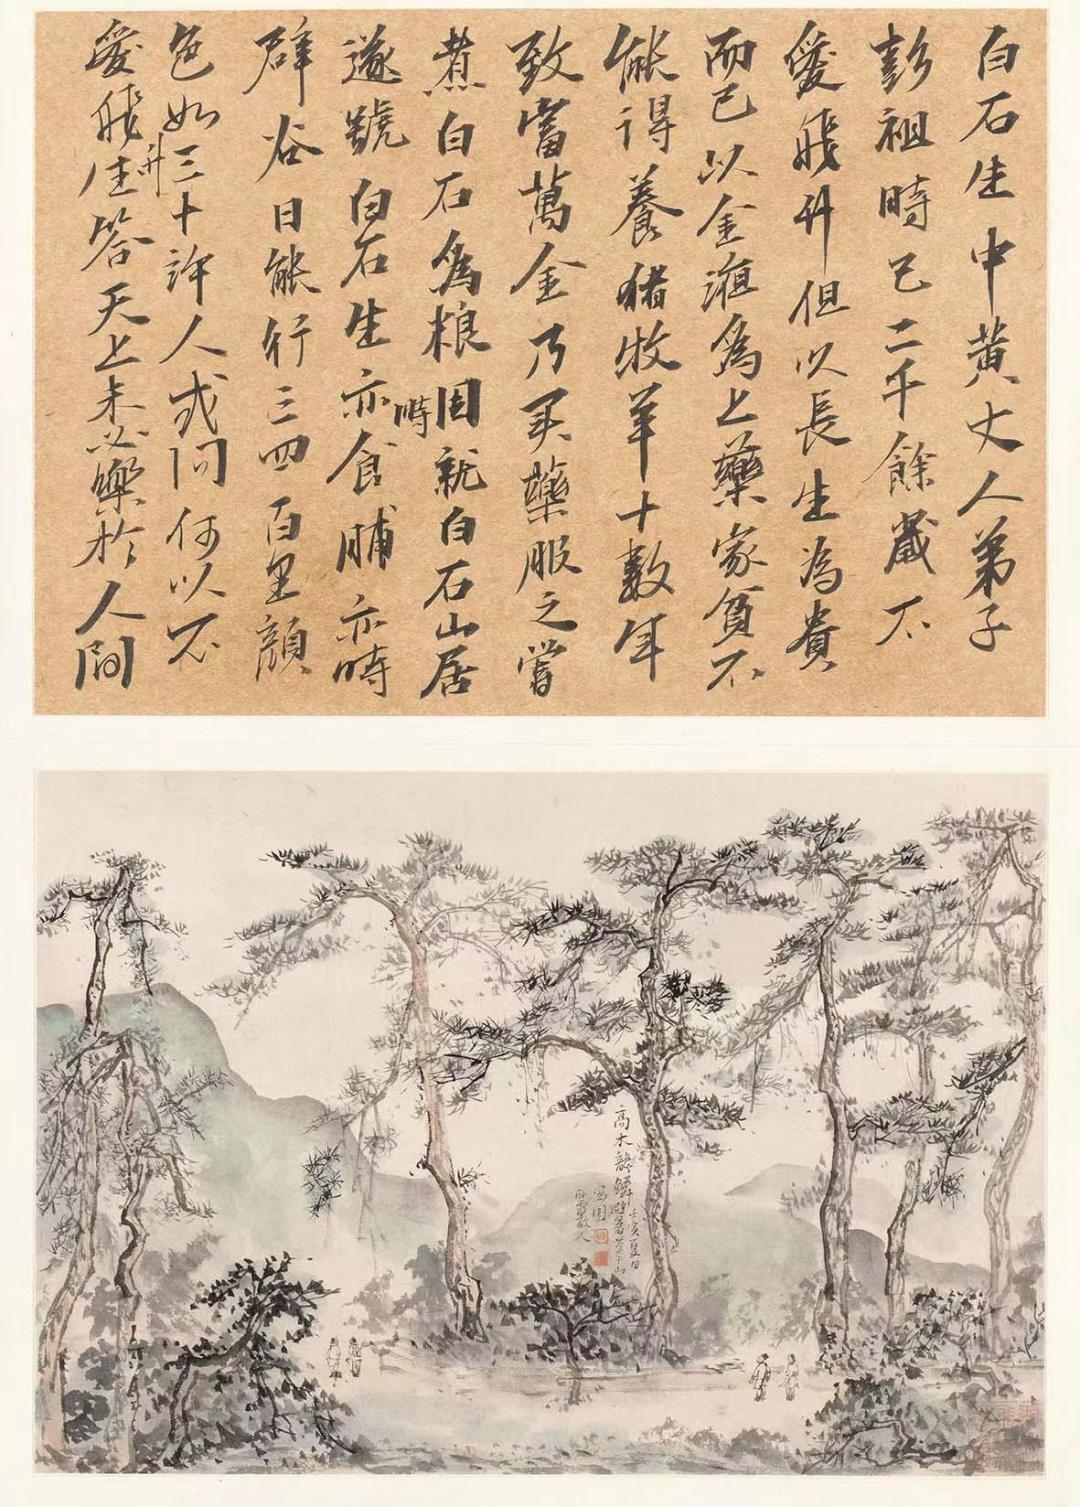 白石生中黄丈人弟子
彭祖時已二千餘歲不
愛飛升但以長生為貴
而已以金液為上藥家貧不
能得養猪牧羊十數年
致富萬金乃买藥服之嘗
煮白石為粮因就白石山居
時
遂號白石生亦食脯亦時
辟谷日能行三四百里顔
色如三十許人或問何以不
升
愛飛生答天上未必樂於人間
高木龍鱗
寫图